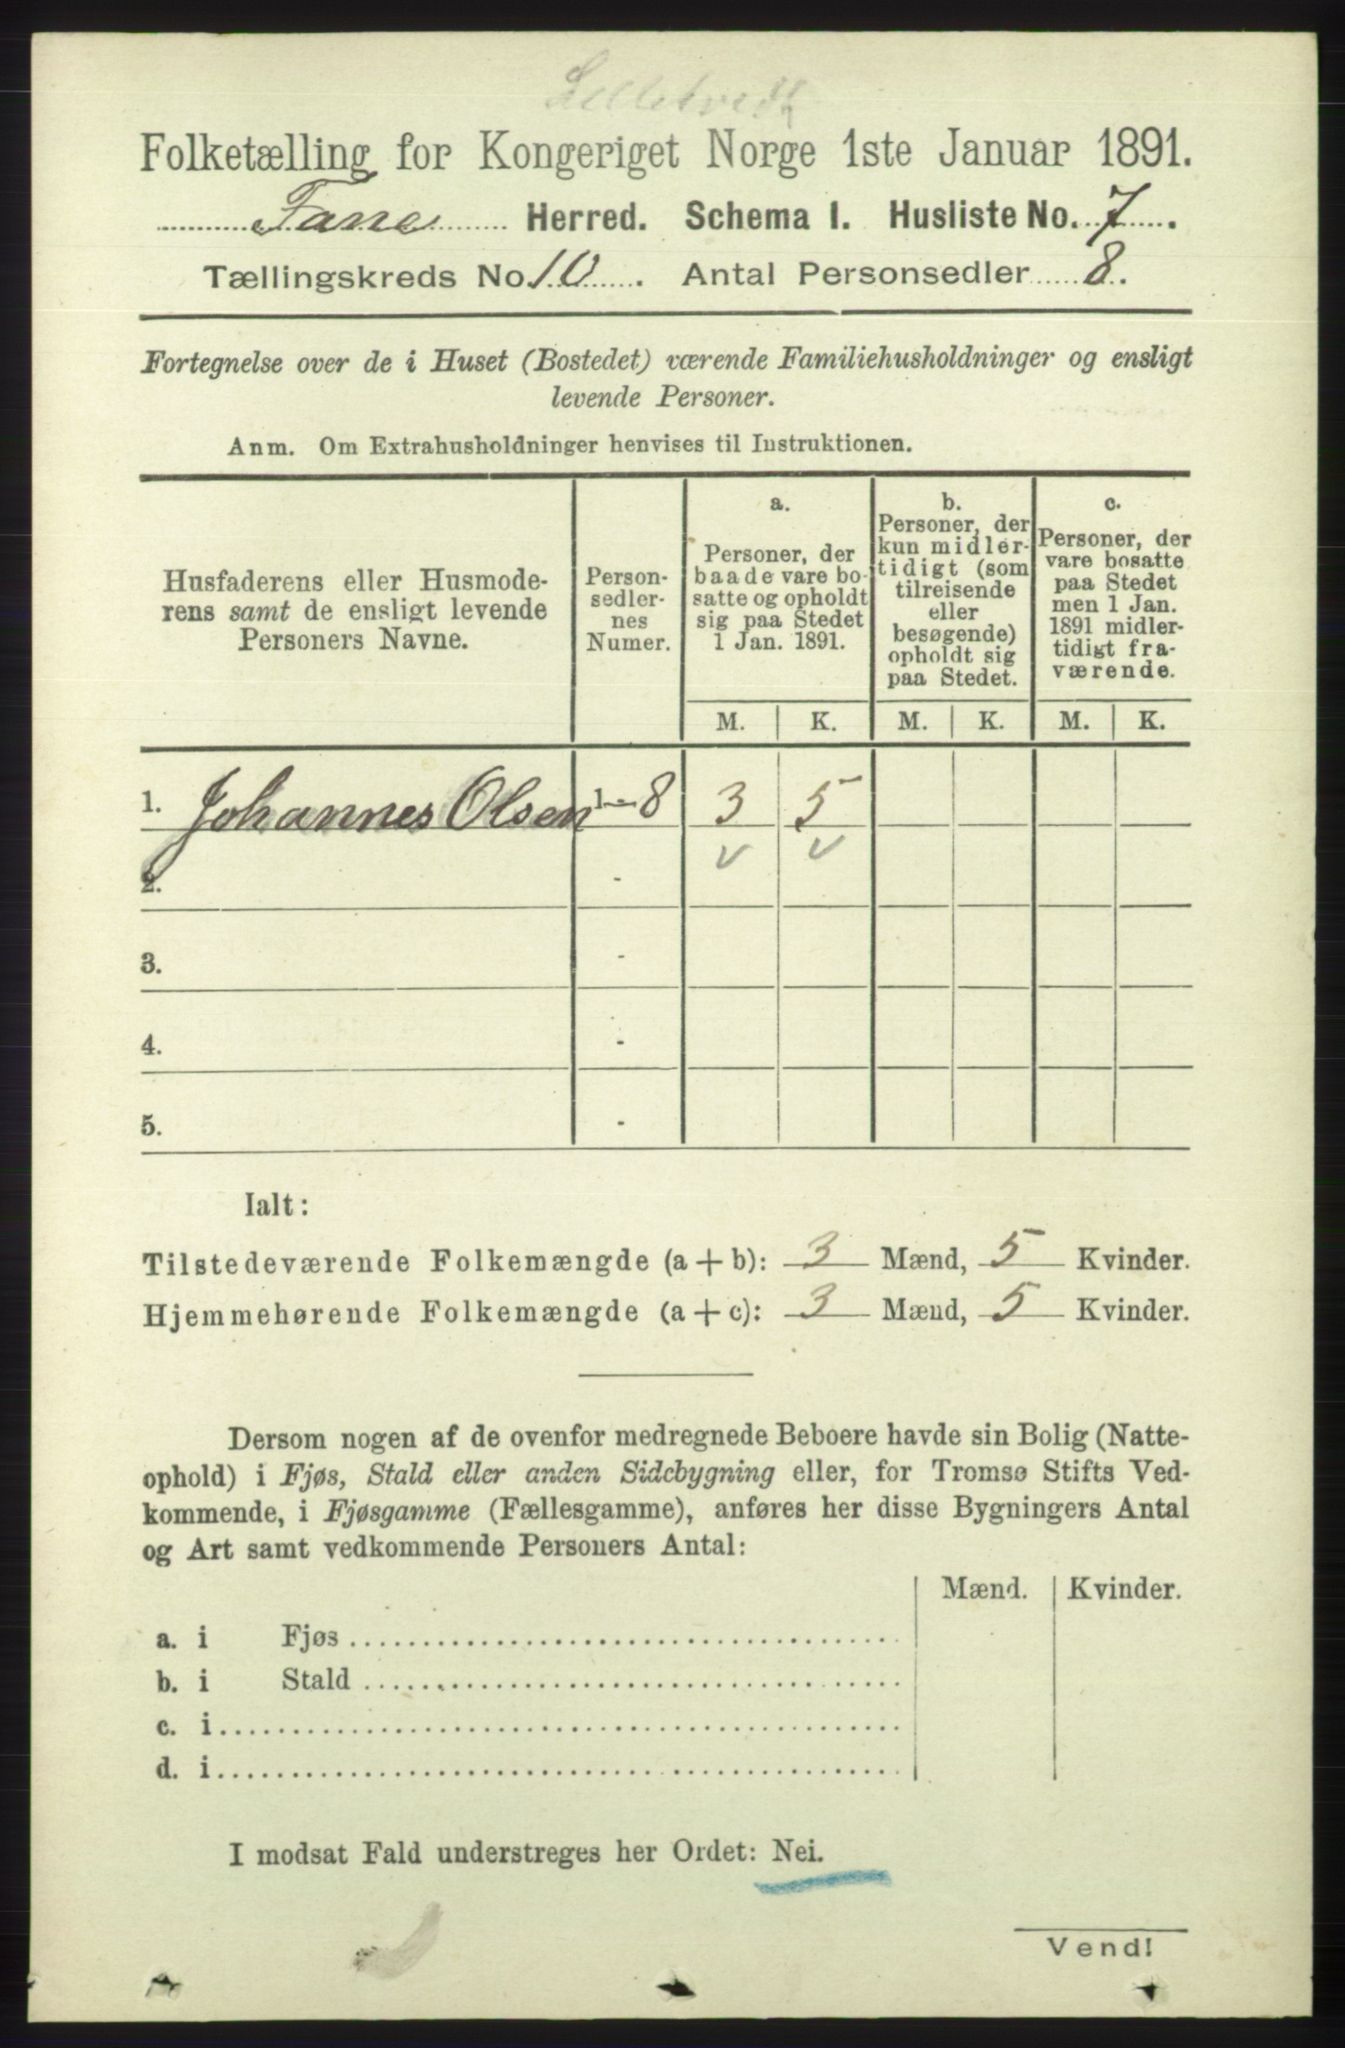 Lilletvedt
Folketælling for Kongeriget Norge 1ste Januar 1891.
Fane Herred. Schema I. Husliste No. 7.
Tællingskreds No 10. Antal Personsedler 8.
Fortegnelse over de i Huset (Bostedet) værende Familiehusholdninger og ensligt
levende Personer.
Anm. Om Extrahusholdninger henvises til Instruktionen.
Husfaderens eller Husmode-
rens samt de ensligt levende
Personers Navne.
Person-
sedler-
nes
Numer.
a.
Personer, der
baade vare bo-
satte og opholdt
sig paa Stedet
1 Jan. 1891.
b.
Personer, der
kun midler-
tidigt (som
tilreisende
eller
besøgende)
opholdt sig
paa Stedet.
c.
Personer, der
vare bosatte
paa Stedet
men 1 Jan.
1891 midler-
tidigt fra-
værende.
M. K. M. K. M. K.
1. Johannes Olsen 1-8 3 5
v v
2. -
3. -
4. -
5. -
Ialt:
Tilstedeværende Folkemængde (a+b): 3 Mænd, 5 Kvinder.
Hjemmehørende Folkemængde (a+c): 3 Mænd, 5 Kvinder.
Dersom nogen af de ovenfor medregnede Beboere havde sin Bolig (Natte-
ophold) i Fjøs, Stald eller anden Sidebygning eller, for Tromsø Stifts Ved-
kommende, i Fjøsgamme (Fællesgamme), anføres her disse Bygningers Antal
og Art samt vedkommende Personers Antal:
Mænd. Kvinder.
a. i Fjøs
b. i Stald
c. i
d. i
I modsat Fald understreges her Ordet: Nei.
Vend!